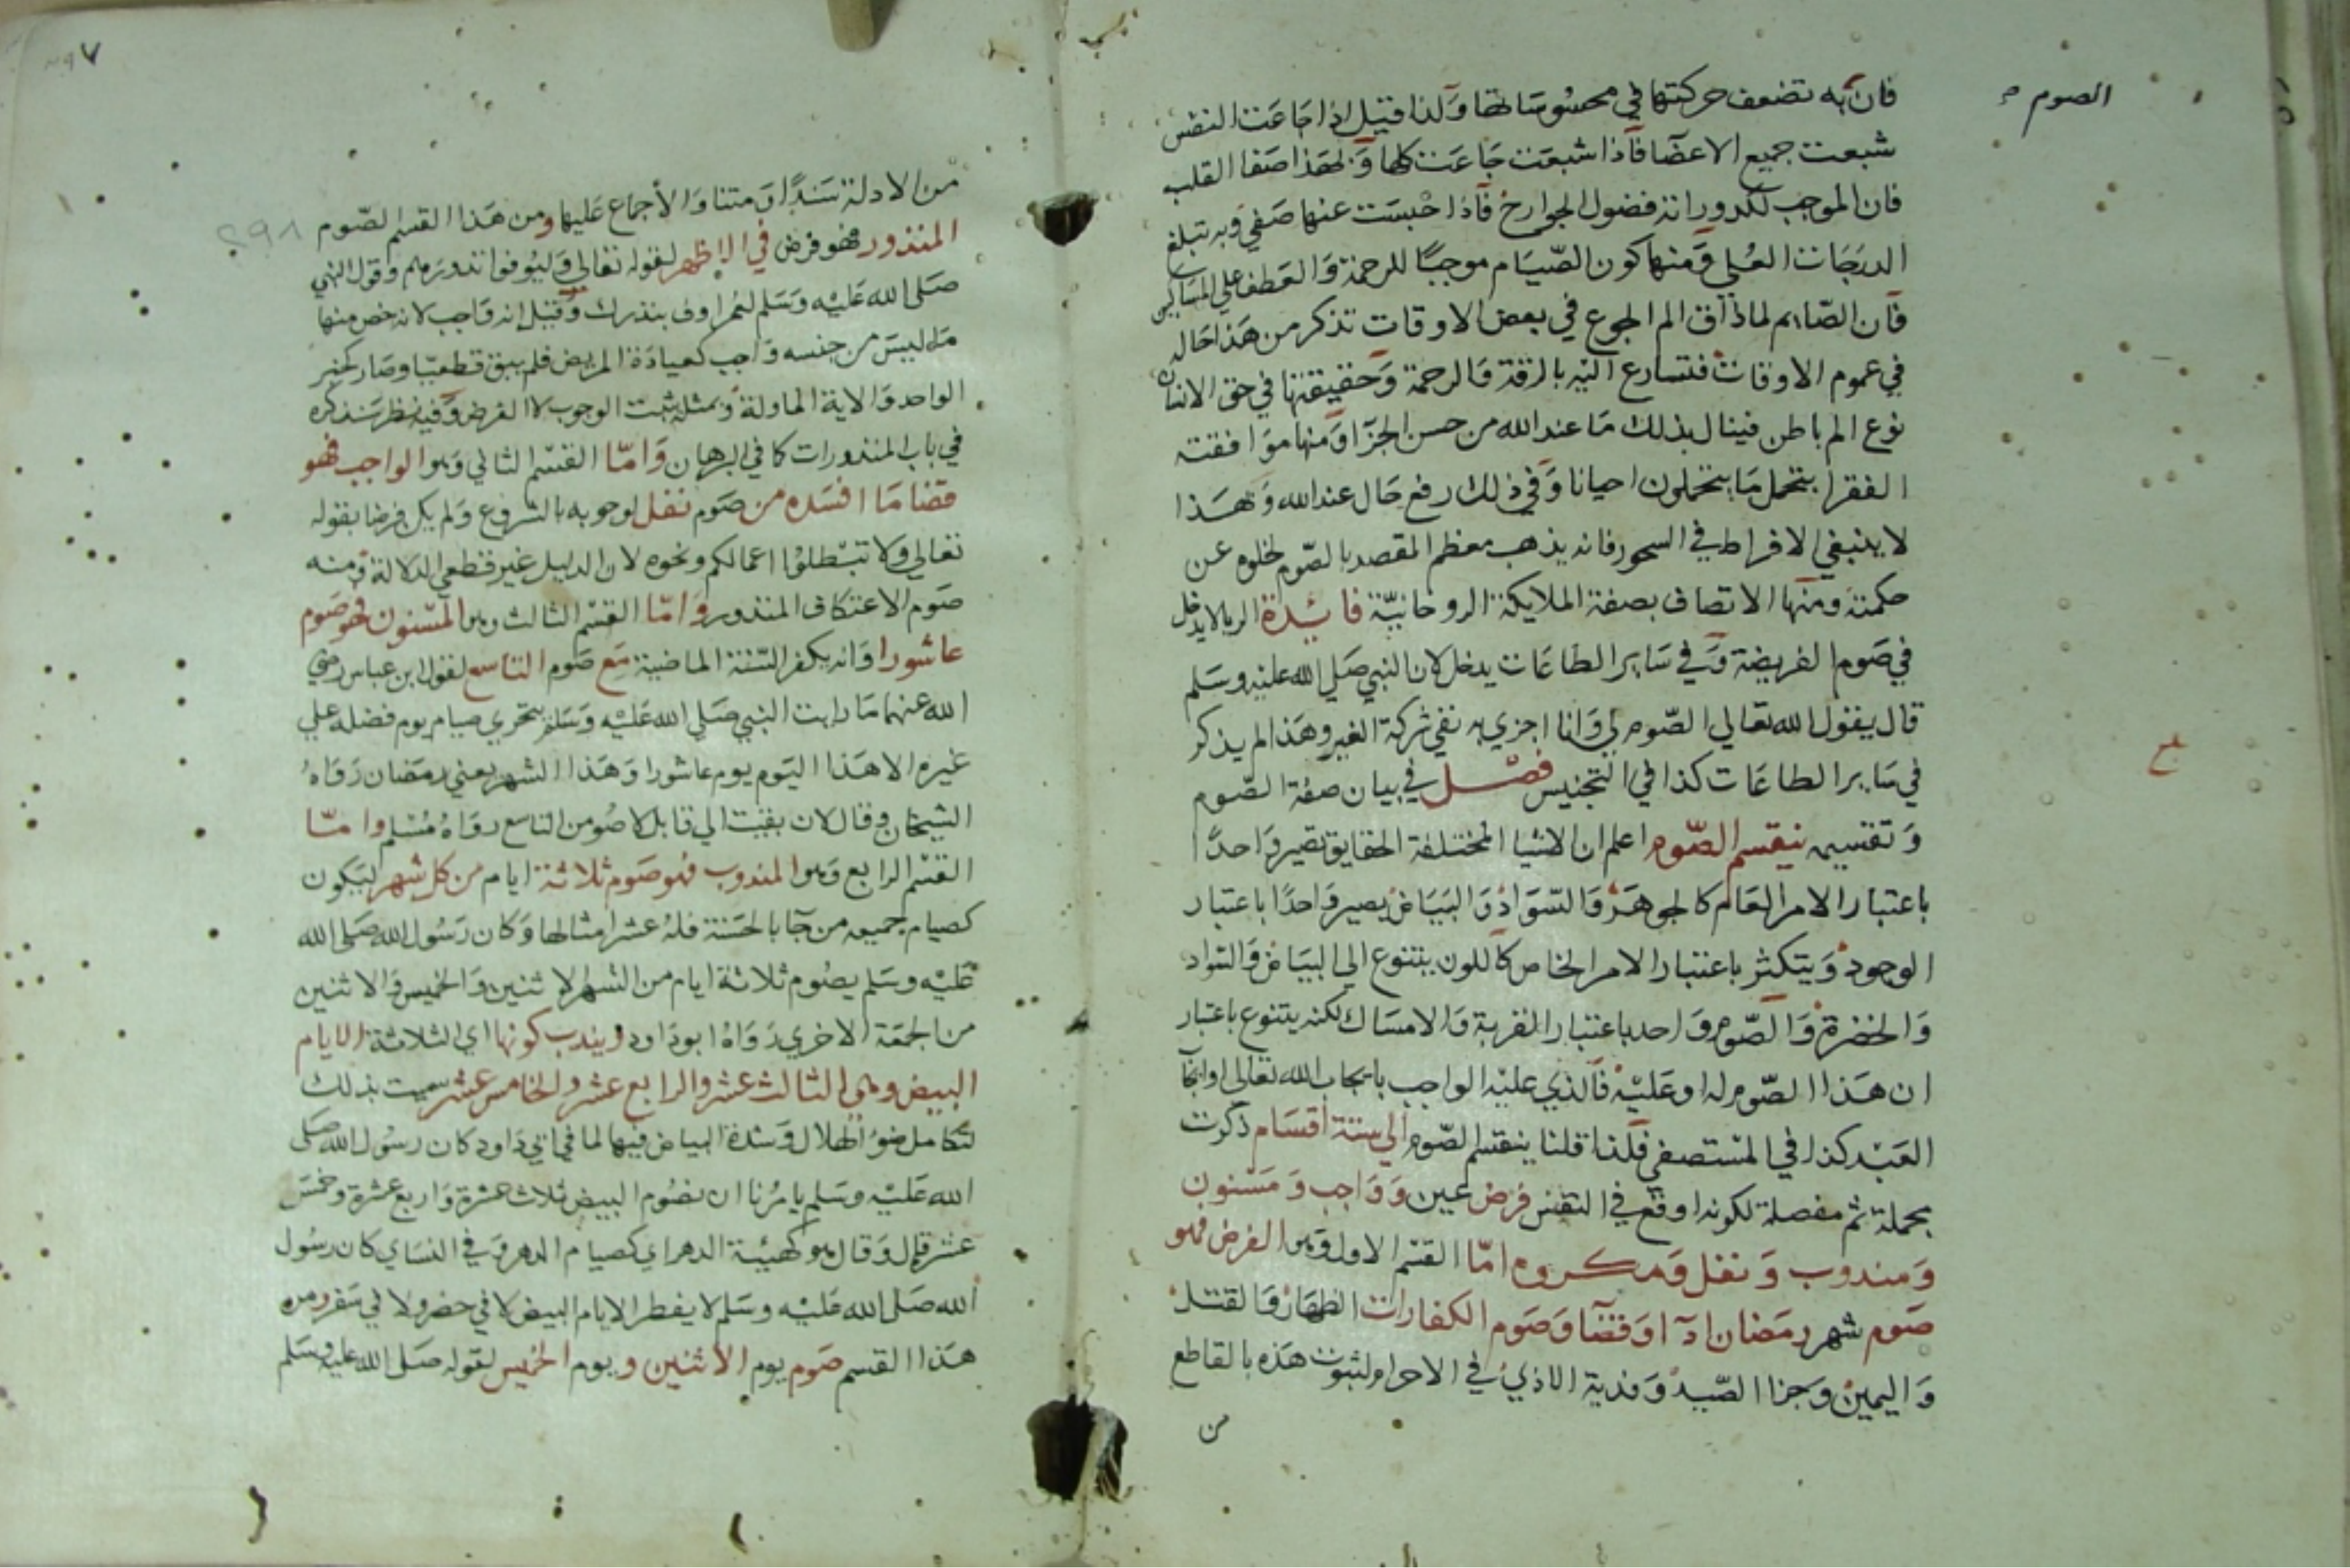 الصوم
فان به تضعف حركتها في محسوساتها ولذا قيل اذا جاعت النفس
شبعت جميع الاعضا فاذا شبعت جاعت كلها ولهذا صفا القلب
فان الموجب لكدوراته فضول الجوارح فاذا حبست عنها صفي وبه تبلغ
الدرجات العلي ومنها كون الصيام موجبا للرحمة والعطف علي المساكين
فان الصايم لما ذاق الم الجوع في بعض الاوقات تذكر من هذا حاله
في عموم الاوقات فتسارع اليه بالرقة والرحمة وحقيقتها في حق الانسان
نوع الم باطن فينال بذلك ما عند الله من حسن الجزا ومنها موافقته
الفقرا بتحمل ما يتحملون احيانا وفي ذلك رفع حال عند الله ولهذا
لا ينبغي الافراط في السحور فانه يذهب معظم المقصد بالصوم لخلوه عن
حكمته ومنها الاتصاف بصفة الملايكة الروحانية فائدة الريا لا يدخل
في صوم الفريضة وفي ساير الطاعات يدخل لان النبي صلي الله عليه وسلم
قال يقول الله تعالي الصوم لي وانا اجزي به نفي شركة الغير وهذا لم يذكر
في ساير الطاعات كذا في التجنيس فصل في بيان صفة الصوم
وتقسيمه ينقسم الصوم اعلم ان الاشيا المختلفة الحقايق تصير واحدا
باعتبار الامر العام كالجوهر والسواد والبياض يصير واحدا باعتبار
الوجود ويتكثر باعتبار الامر الخاص كاللون يتنوع الي البياض والسواد
والخضرة والصوم واحد باعتبار القربة والامساك لكنه يتنوع باعتبار
ان هذا الصوم له او عليه فالذي عليه الواجب بايجاب الله تعالي او ايجاب
العبد كذا في المستصفي فلذا قلنا ينقسم الصوم الي ستة اقسام ذكرت
مجملة ثم مفصلة لكونه اوقع في النفس فرض عين وواجب ومسنون
ومندوب ونفل ومكروه اما القسم الاول وهو الفرض فهو
صوم شهر رمضان ادآ وقضآ وصوم الكفارات الظهار والقتل
واليمين وجزا الصيد وفدية الاذي في الاحرام لثبوت هذه بالقاطع
من
من الادلة سندا ومتنا والاجماع عليها ومن هذا القسم الصوم
المنذور فهو فرض في الاظهر لقوله تعالي وليوفوا نذورهم وقول النبي
صلي الله عليه وسلم لعمر اوف بنذرك وقيل انه واجب لانه خص منها
ما ليس من جنسه واجب كعيادة المريض فلم يبق قطعيا وصار كخبر
الواحد والاية الماولة وبمثله يثبت الوجوب لا الفرض وفيه نظر سنذكره
في باب المنذورات كما في البرهان واما القسم الثاني وهو الواجب فهو
قضا ما افسده من صوم نفل لوجوبه بالشروع ولم يكن فرضا بقوله
تعالي ولا تبطلوا اعمالكم ونحوه لان الدليل غير قطعي الدلالة ومنه
صوم الاعتكاف المنذور واما القسم الثالث وهو المسنون فهو صوم
عاشورا وانه يكفر السنة الماضية مع صوم التاسع لقول ابن عباس رضي
الله عنهما ما رايت النبي صلي الله عليه وسلم يتحري صيام يوم فضله علي
غيره الا هذا اليوم يوم عاشورا وهذا الشهر يعني رمضان رواه
الشيخان وقال لان بقيت الي قابل لاصومن التاسع رواه مسلم واما
القسم الرابع وهو المندوب فهو صوم ثلاثة ايام من كل شهر ليكون
كصيام جميعه من جآ بالحسنة فله عشر امثالها وكان رسول الله صلي الله
عليه وسلم يصوم ثلاثة ايام من الشهر الاثنين والخميس والاثنين
من الجمعة الاخري رواه ابو داود ويندب كونها اي الثلاثة الايام
البيض وهي الثالث عشر والرابع عشر والخامس عشر سميت بذلك
لتكامل ضوء الهلال وشدة البياض فيها لما في ابي داود كان رسول الله صلي
الله عليه وسلم يامرنا ان نصوم البيض ثلاث عشرة واربع عشرة وخمس
عشرة قال وقال هو كهيئة الدهر اي كصيام الدهر وفي النساي كان رسول
الله صلي الله عليه وسلم لا يفطر الايام البيض لا في حضر ولا في سفر ومن
هذا القسم صوم يوم الاثنين ويوم الخميس لقوله صلي الله عليه وسلم